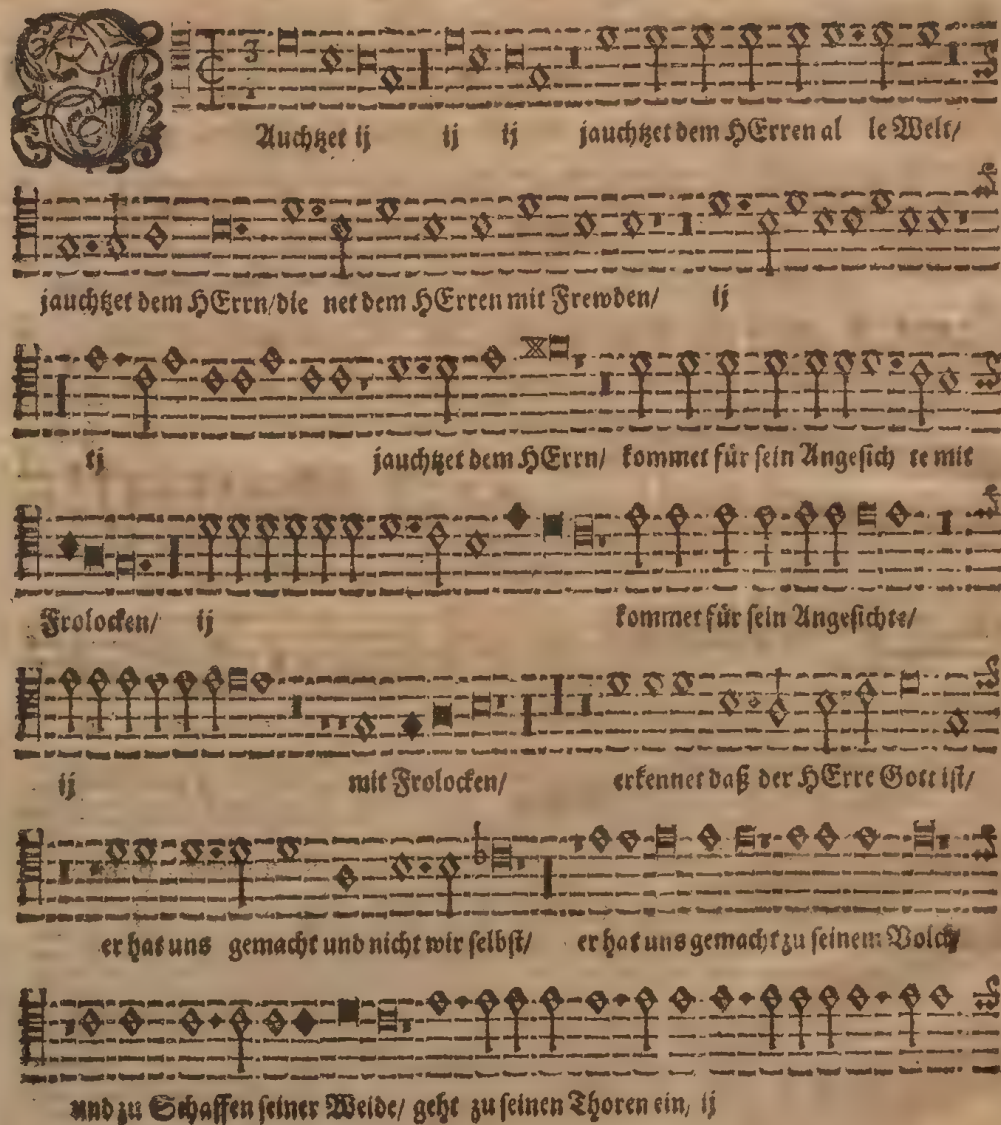 JAuchtzet ij ij ij jauchtzet dem HErren al le Welt/
jauchtzet dem HErrn/ die net dem HErren mit Frewden/ ij
ij jauchtzet dem HErrn/ kommet für sein Angesich te mit
Frolocken/ ij kommet für sein Angesichte/
ij mit Frolocken/ erkennet daß der HErre Gott ist/
er hat uns gemacht und nicht wir selbst/ er hat uns gemacht zu seinem Volck
und zu Schaffen seiner Weide/ geht zu seinen Thoren ein, ij